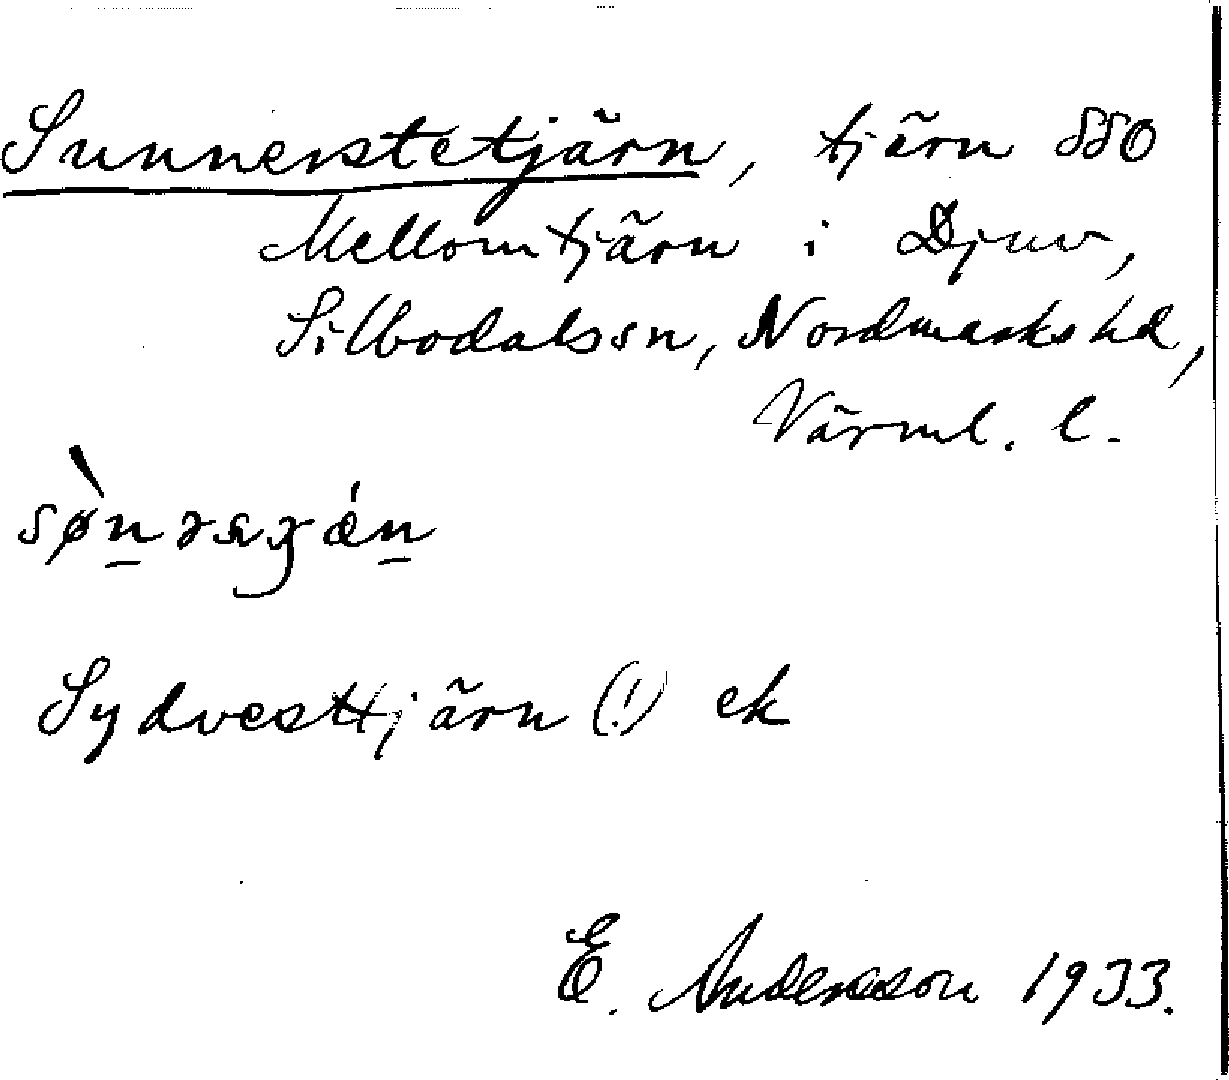 Sunnerstetjärn, tjärn SSO
Mellomtjärn i Djuv,
Silbodals sn, Nordmarks hd,
Värml. l.
Sydvesttjärn (!) ek
E. Andersson 1933.